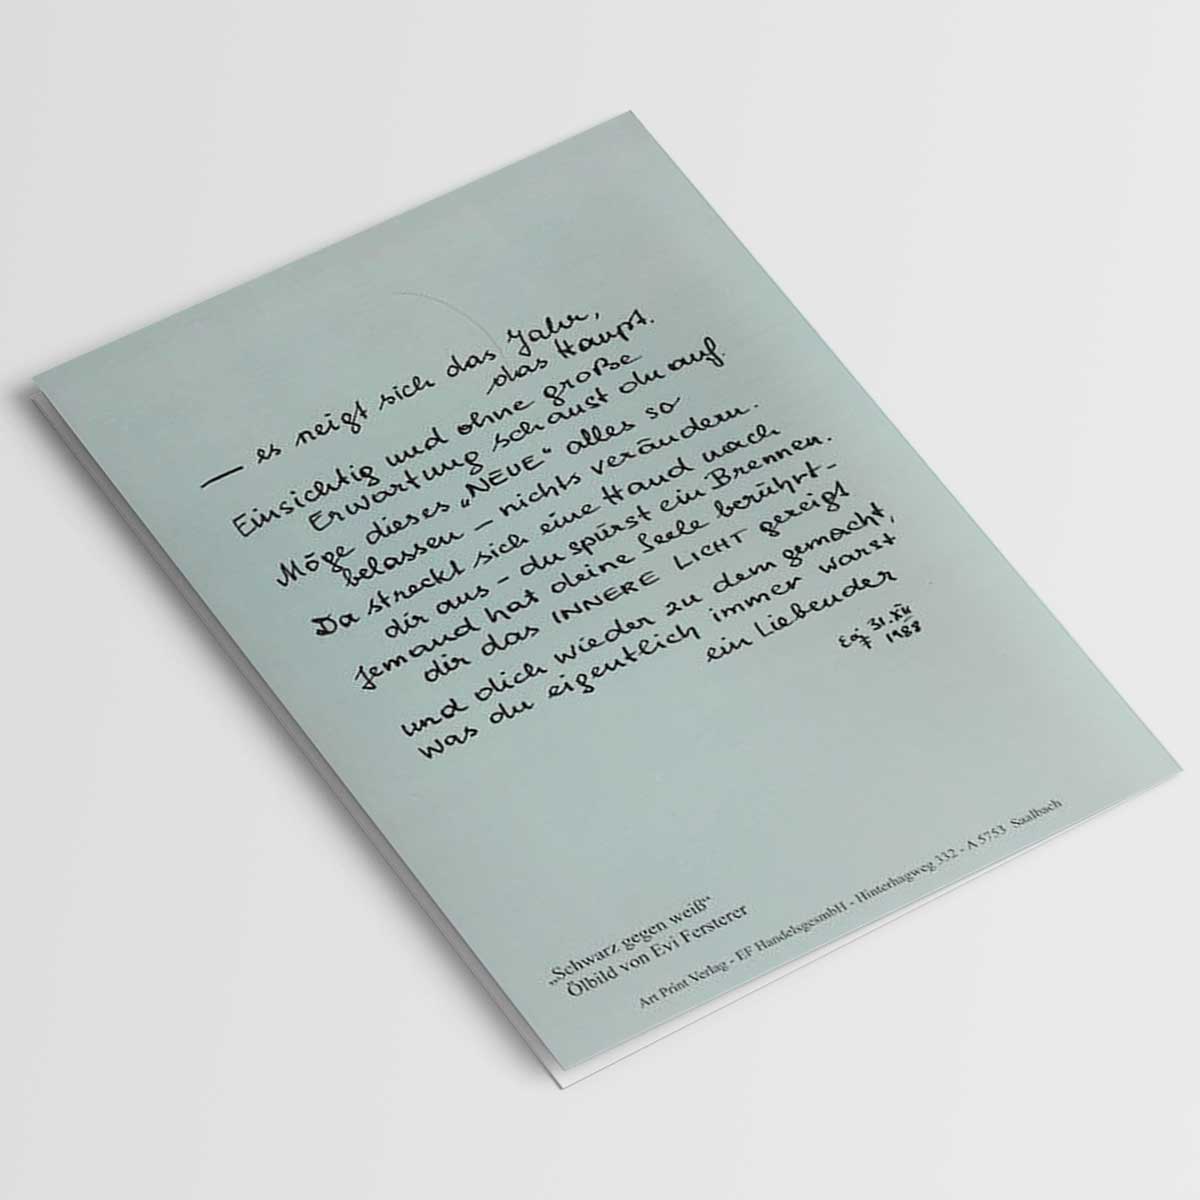 — es neigt sich das Jahr,
das Haupt.
Einsichtig und ohne große
Erwartung schaust du auf.
Möge dieses „NEUE“ alles so
belassen – nichts verändern.
Da streckt sich eine Hand nach
dir aus – du spürst ein Brennen.
Jemand hat deine Seele berührt –
dir das INNERE LICHT gezeigt
und dich wieder zu dem gemacht,
was du eigentlich immer warst
ein Liebender
31.XII
1988
„Schwarz gegen weiß“
Ölbild von Evi Fersterer
Art Print Verlag - EF HandelsgesmbH - Hinterhagweg 332 - A 5753 Saalbach